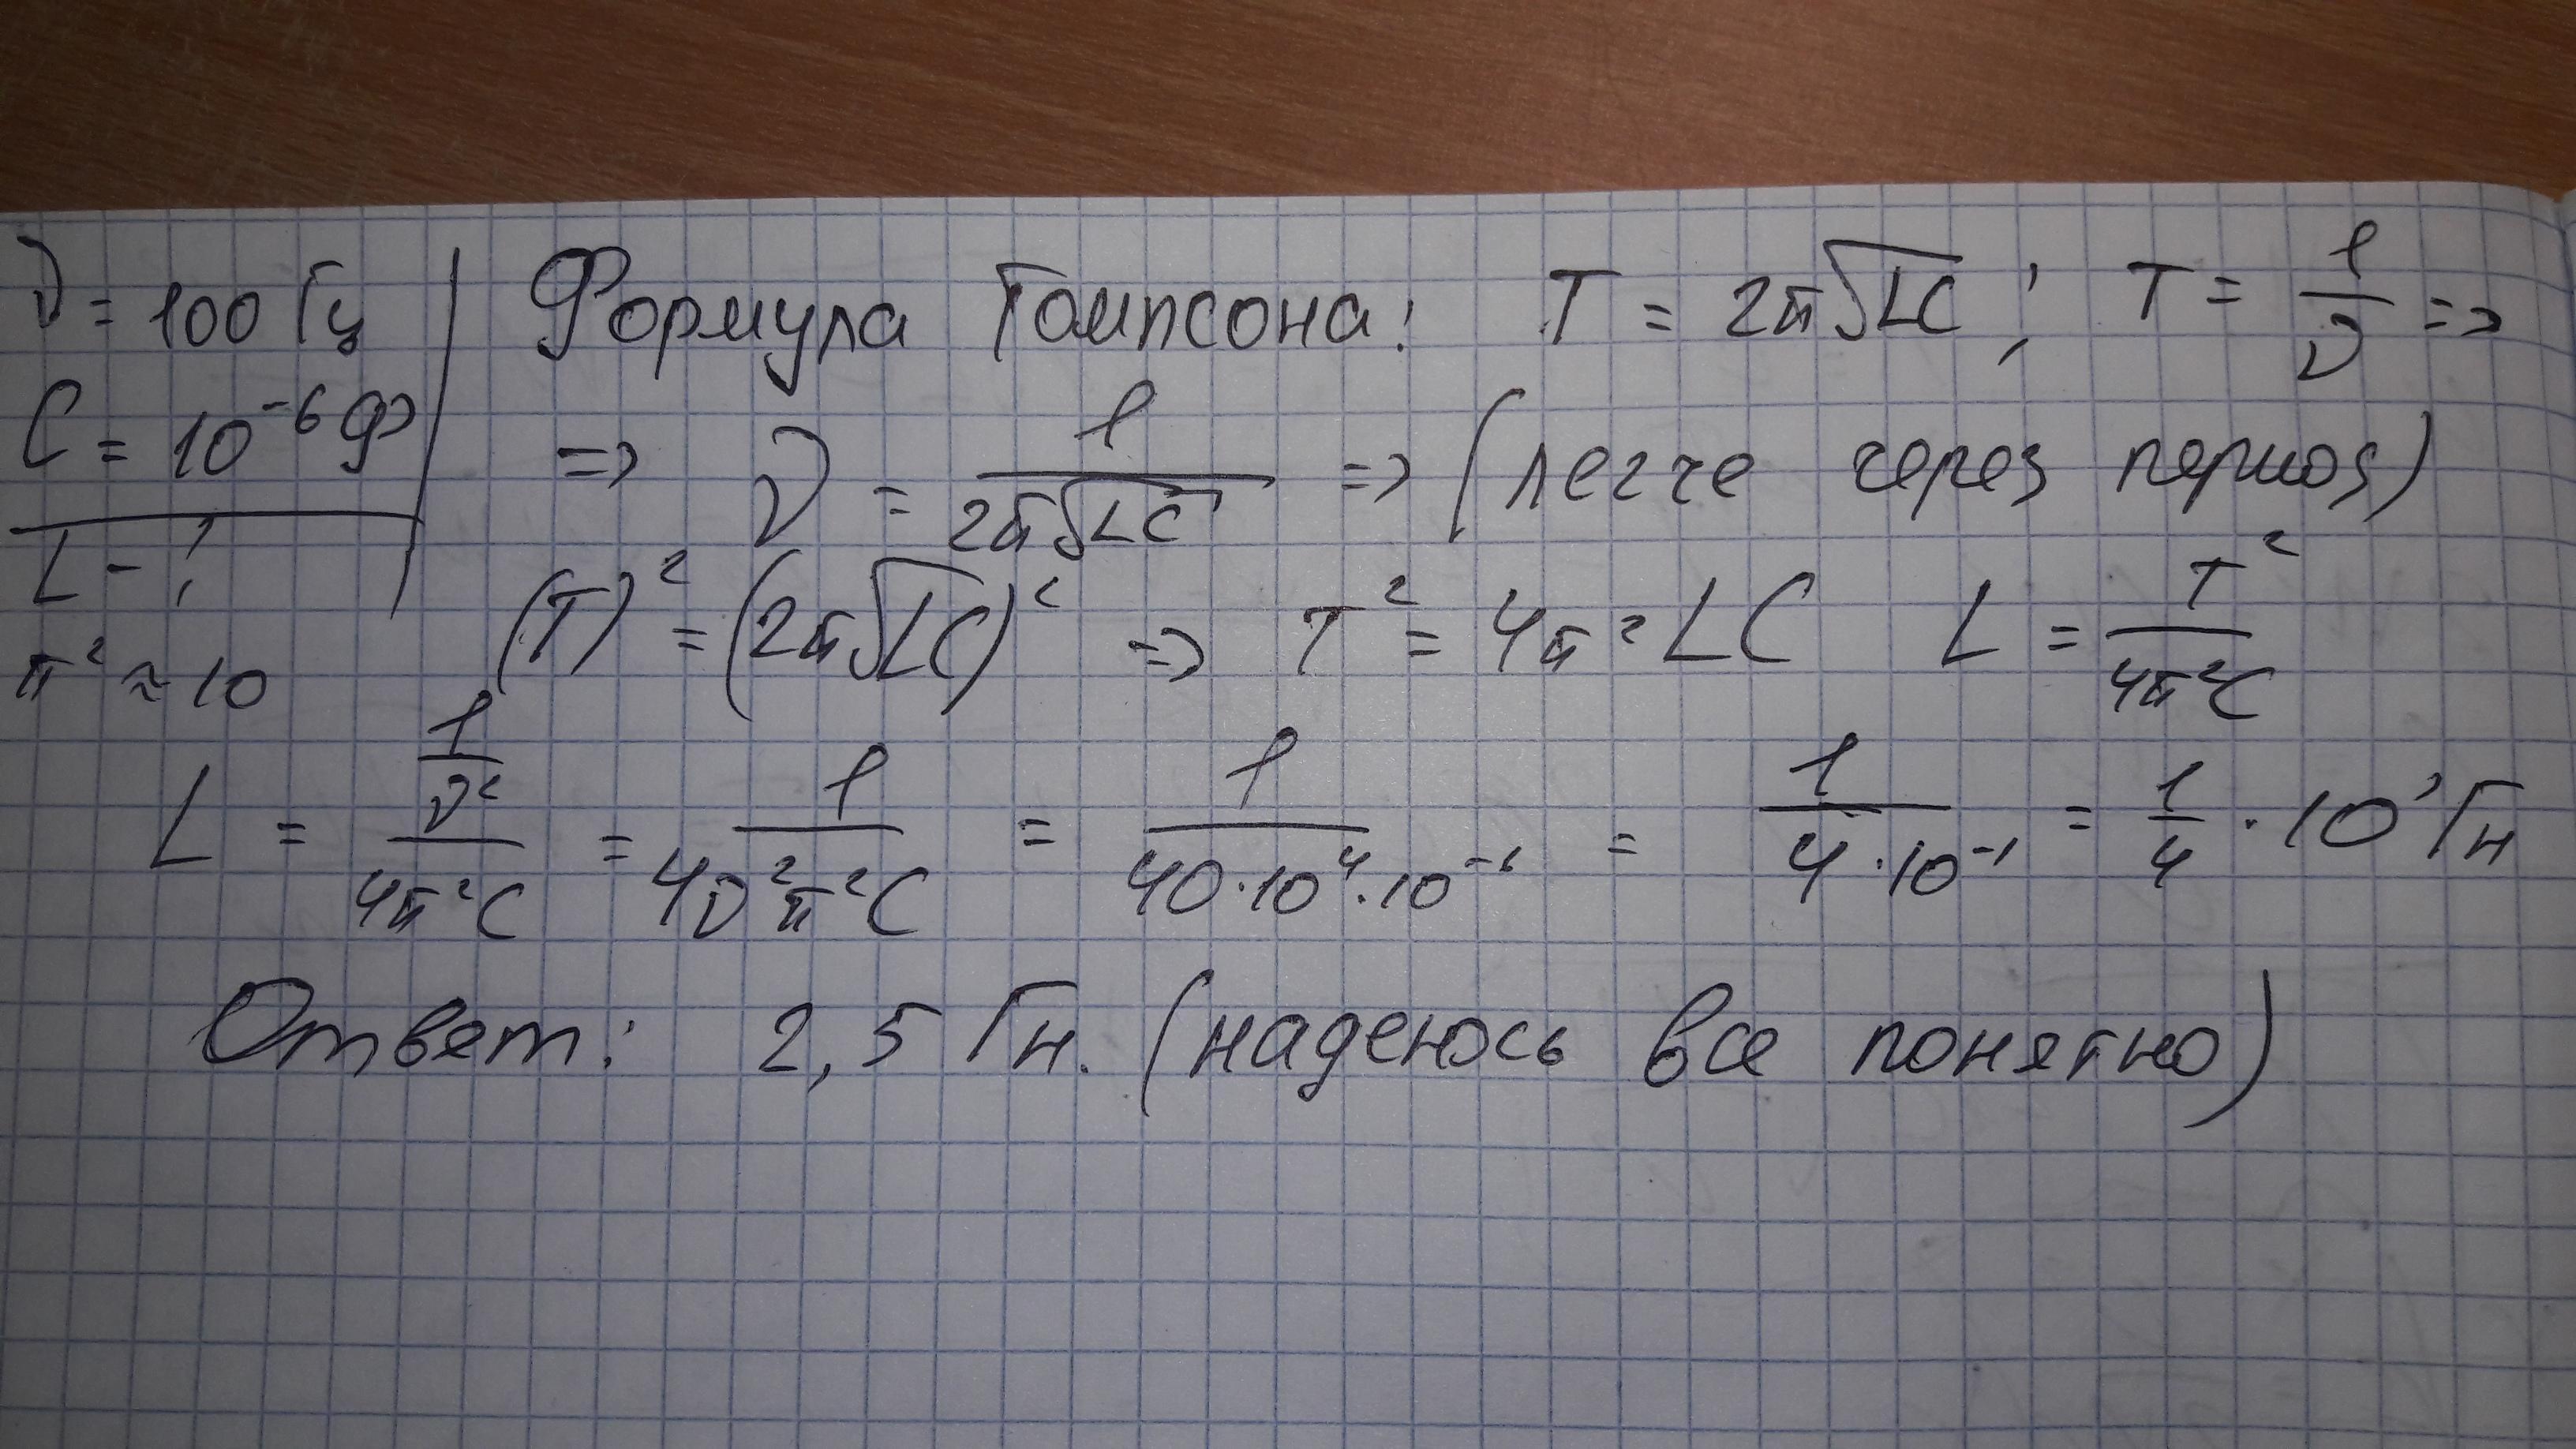 ν = 100 Гц
C = 10⁻⁶ Ф
L - ?
π² ≈ 10
Формула Томпсона: T = 2π√LC ; T = 1/ν =>
=> ν = 1/(2π√LC) => (легче через период)
(T)² = (2π√LC)² => T² = 4π²LC L = T²/(4π²C)
L = (1/ν²)/(4π²C) = 1/(4ν²π²C) = 1/(40·10⁴·10⁻⁶) = 1/(4·10⁻¹) = 1/4 · 10¹ Гн
Ответ: 2,5 Гн. (надеюсь все понятно)